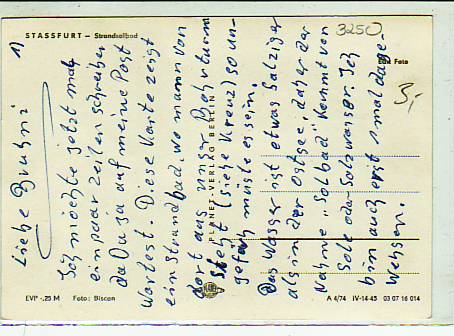 STASSFURT – Strandsolbad
3250
Echt Foto
3,-
1)
Liebe Bruhni
Ich möchte jetzt mal
ein paar Zeilen schreiben
da Du ja auf meine Post
wartest. Diese Karte zeigt
ein Strandbad, wo man von
dort aus unser Bohrturm
steht (siehe Kreuz) so un-
gefähr müste es sein.
Das Wasser ist etwas Salziger
als in der Ostsee, daher der
Nahme "Solbad" kommt von
Sole oder Salzwasser. Ich
bin auch erst 1 mal dage-
wehsen.
PLANET-VERLAG BERLIN
EVP -,25 M Foto: Biscan
A 4/74 IV-14-45 03 07 16 014